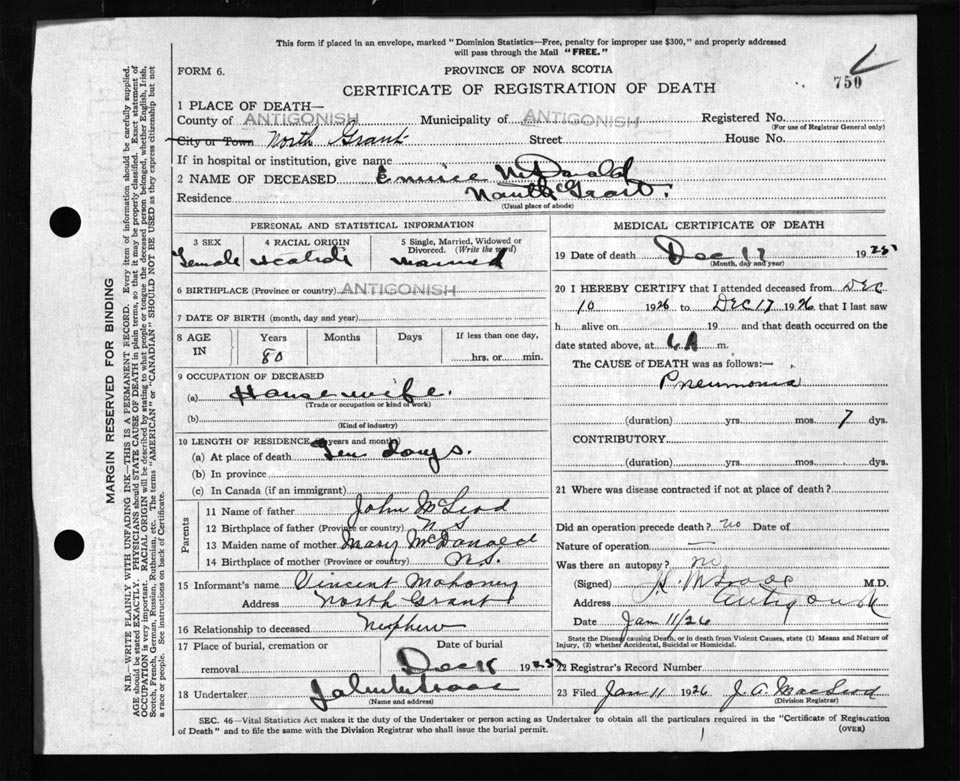 This form if placed in an envelope, marked "Dominion Statistics—Free, penalty for improper use $300," and properly addressed
will pass through the Mail "FREE."
FORM 6.
PROVINCE OF NOVA SCOTIA
750
CERTIFICATE OF REGISTRATION OF DEATH
1 PLACE OF DEATH—
County of ANTIGONISH Municipality of ANTIGONISH Registered No.
(For use of Registrar General only)
City or Town North Grant Street House No.
If in hospital or institution, give name
2 NAME OF DECEASED McDonald
Residence North Grant.
(Usual place of abode)
PERSONAL AND STATISTICAL INFORMATION
3 SEX Female
4 RACIAL ORIGIN Scotch
5 Single, Married, Widowed or Divorced. (Write the word) Married
6 BIRTHPLACE (Province or country) ANTIGONISH
7 DATE OF BIRTH (month, day and year)
8 AGE IN Years Months Days If less than one day,
80 hrs. or min.
9 OCCUPATION OF DECEASED
(a) Housewife.
(Trade or occupation or kind of work)
(b)
(Kind of industry)
10 LENGTH OF RESIDENCE (in years and months)
(a) At place of death Ten Days.
(b) In province
(c) In Canada (if an immigrant)
Parents
11 Name of father John McLeod
12 Birthplace of father (Province or country) N S
13 Maiden name of mother Mary McDonald
14 Birthplace of mother (Province or country) N.S.
15 Informant's name Vincent Mahoney
Address North Grant
16 Relationship to deceased Nephew
17 Place of burial, cremation or removal Date of burial
Dec 18 1925
18 Undertaker John
(Name and address)
MEDICAL CERTIFICATE OF DEATH
19 Date of death Dec 17 1925
(Month, day and year)
20 I HEREBY CERTIFY that I attended deceased from DEC
10 1926 to DEC 17 1926 that I last saw
h alive on 19 and that death occurred on
date stated above, at 6 A m.
The CAUSE of DEATH was as follows:—
Pneumonia
(duration) yrs. mos. 7 dys.
CONTRIBUTORY
(duration) yrs. mos. dys.
21 Where was disease contracted if not at place of death?
Did an operation precede death? no Date of
Nature of operation —
Was there an autopsy? no
(Signed) M.D.
Address Antigonish
Date Jan 11/26
State the Disease causing Death, or in death from Violent Causes, state (1) Means and Nature of
Injury, (2) whether Accidental, Suicidal or Homicidal.
22 Registrar's Record Number
23 Filed Jan 11 1926 J. A. MacLeod
(Division Registrar)
SEC. 46—Vital Statistics Act makes it the duty of the Undertaker or person acting as Undertaker to obtain all the particulars required in the "Certificate of Registration
of Death" and to file the same with the Division Registrar who shall issue the burial permit.
(OVER)
MARGIN RESERVED FOR BINDING
N.B.—WRITE PLAINLY WITH UNFADING INK—THIS IS A PERMANENT RECORD. Every item of information should be carefully supplied.
AGE should be stated EXACTLY. PHYSICIANS should STATE CAUSE OF DEATH in plain terms, so that it may be properly classified. Exact statement of
OCCUPATION is very important. RACIAL ORIGIN will be described by stating to what people or tongue the deceased person belonged, whether English, Irish,
Scotch, French, German, Russian, Ruthenian, etc. The terms "AMERICAN" or "CANADIAN" SHOULD NOT BE USED as they express citizenship but not
a race or people. See instructions on back of Certificate.